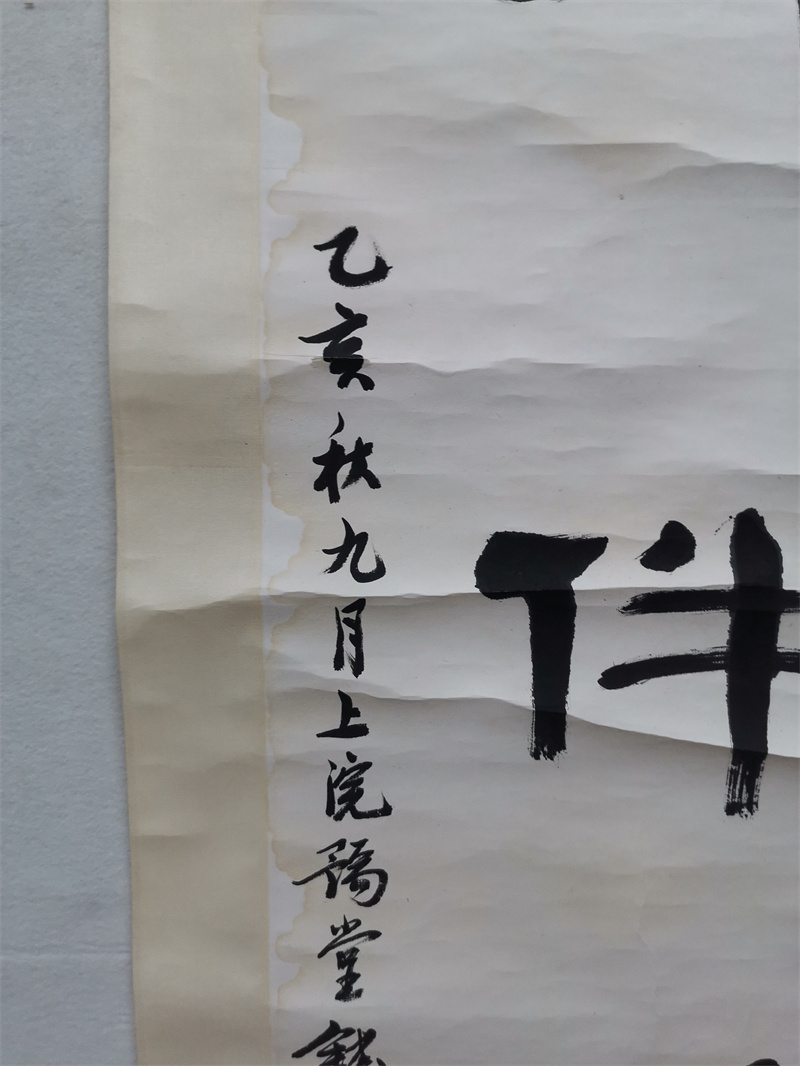 乙亥秋九月上浣豫堂錢